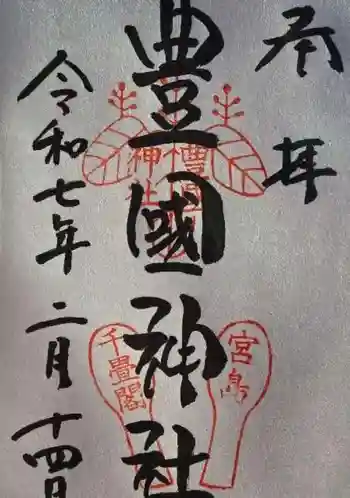 奉拝
豊國神社
令和七年二月十四日
豊國神社
千畳閣
宮島